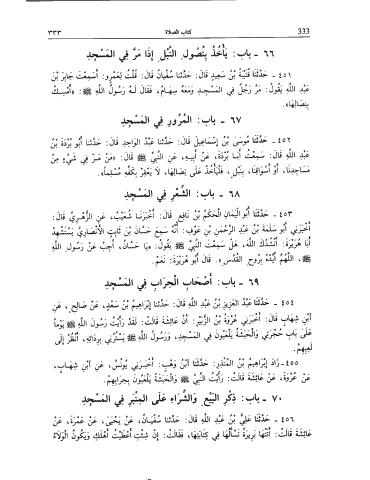 333
كتاب الصلاة
٣٣٣
٦٦ - باب: يَأْخُذُ بِنُصُولِ النَّبْلِ إِذَا مَرَّ فِي المَسْجِدِ
٤٥١ - حَدَّثَنَا قُتَيْبَةُ بْنُ سَعِيدٍ قَالَ: حَدَّثَنَا سُفْيَانُ قَالَ: قُلْتُ لِعَمْرٍو: أَسَمِعْتَ جَابِرَ بْنَ
عَبْدِ اللَّهِ يَقُولُ: مَرَّ رَجُلٌ فِي المَسْجِدِ وَمَعَهُ سِهَامٌ، فَقَالَ لَهُ رَسُولُ اللَّهِ ﷺ: «أَمْسِكْ
بِنِصَالِهَا».
٦٧ - باب: المُرُورِ فِي المَسْجِدِ
٤٥٢ - حَدَّثَنَا مُوسَى بْنُ إِسْمَاعِيلَ قَالَ: حَدَّثَنَا عَبْدُ الوَاحِدِ قَالَ: حَدَّثَنَا أَبُو بُرْدَةَ بْنُ
عَبْدِ اللَّهِ قَالَ: سَمِعْتُ أَبَا بُرْدَةَ، عَنْ أَبِيهِ، عَنِ النَّبِيِّ ﷺ قَالَ: «مَنْ مَرَّ فِي شَيْءٍ مِنْ
مَسَاجِدِنَا، أَوْ أَسْوَاقِنَا، بِنَبْلٍ، فَلْيَأْخُذْ عَلَى نِصَالِهَا، لَا يَعْقِرْ بِكَفِّهِ مُسْلِمًا».
٦٨ - باب: الشِّعْرِ فِي المَسْجِدِ
٤٥٣ - حَدَّثَنَا أَبُو اليَمَانِ الحَكَمُ بْنُ نَافِعٍ قَالَ: أَخْبَرَنَا شُعَيْبٌ، عَنِ الزُّهْرِيِّ قَالَ:
أَخْبَرَنِي أَبُو سَلَمَةَ بْنُ عَبْدِ الرَّحْمَنِ بْنِ عَوْفٍ: أَنَّهُ سَمِعَ حَسَّانَ بْنَ ثَابِتٍ الأَنْصَارِيَّ يَسْتَشْهِدُ
أَبَا هُرَيْرَةَ: أَنْشُدُكَ اللَّهَ، هَلْ سَمِعْتَ النَّبِيَّ ﷺ يَقُولُ: «يَا حَسَّانُ، أَجِبْ عَنْ رَسُولِ اللَّهِ
ﷺ، اللَّهُمَّ أَيِّدْهُ بِرُوحِ القُدُسِ». قَالَ أَبُو هُرَيْرَةَ: نَعَمْ.
٦٩ - باب: أَصْحَابِ الحِرَابِ فِي المَسْجِدِ
٤٥٤ - حَدَّثَنَا عَبْدُ العَزِيزِ بْنُ عَبْدِ اللَّهِ قَالَ: حَدَّثَنَا إِبْرَاهِيمُ بْنُ سَعْدٍ، عَنْ صَالِحٍ، عَنِ
ابْنِ شِهَابٍ قَالَ: أَخْبَرَنِي عُرْوَةُ بْنُ الزُّبَيْرِ: أَنَّ عَائِشَةَ قَالَتْ: لَقَدْ رَأَيْتُ رَسُولَ اللَّهِ ﷺ يَوْمًا
عَلَى بَابِ حُجْرَتِي وَالحَبَشَةُ يَلْعَبُونَ فِي المَسْجِدِ، وَرَسُولُ اللَّهِ ﷺ يَسْتُرُنِي بِرِدَائِهِ، أَنْظُرُ إِلَى
لَعِبِهِمْ.
٤٥٥ - زَادَ إِبْرَاهِيمُ بْنُ المُنْذِرِ: حَدَّثَنَا ابْنُ وَهْبٍ: أَخْبَرَنِي يُونُسُ، عَنِ ابْنِ شِهَابٍ،
عَنْ عُرْوَةَ، عَنْ عَائِشَةَ قَالَتْ: رَأَيْتُ النَّبِيَّ ﷺ وَالحَبَشَةُ يَلْعَبُونَ بِحِرَابِهِمْ.
٧٠ - باب: ذِكْرِ البَيْعِ وَالشِّرَاءِ عَلَى المِنْبَرِ فِي المَسْجِدِ
٤٥٦ - حَدَّثَنَا عَلِيُّ بْنُ عَبْدِ اللَّهِ قَالَ: حَدَّثَنَا سُفْيَانُ، عَنْ يَحْيَى، عَنْ عَمْرَةَ، عَنْ
عَائِشَةَ قَالَتْ: أَتَتْهَا بَرِيرَةُ تَسْأَلُهَا فِي كِتَابَتِهَا، فَقَالَتْ: إِنْ شِئْتِ أَعْطَيْتُ أَهْلَكِ وَيَكُونُ الوَلَاءُ